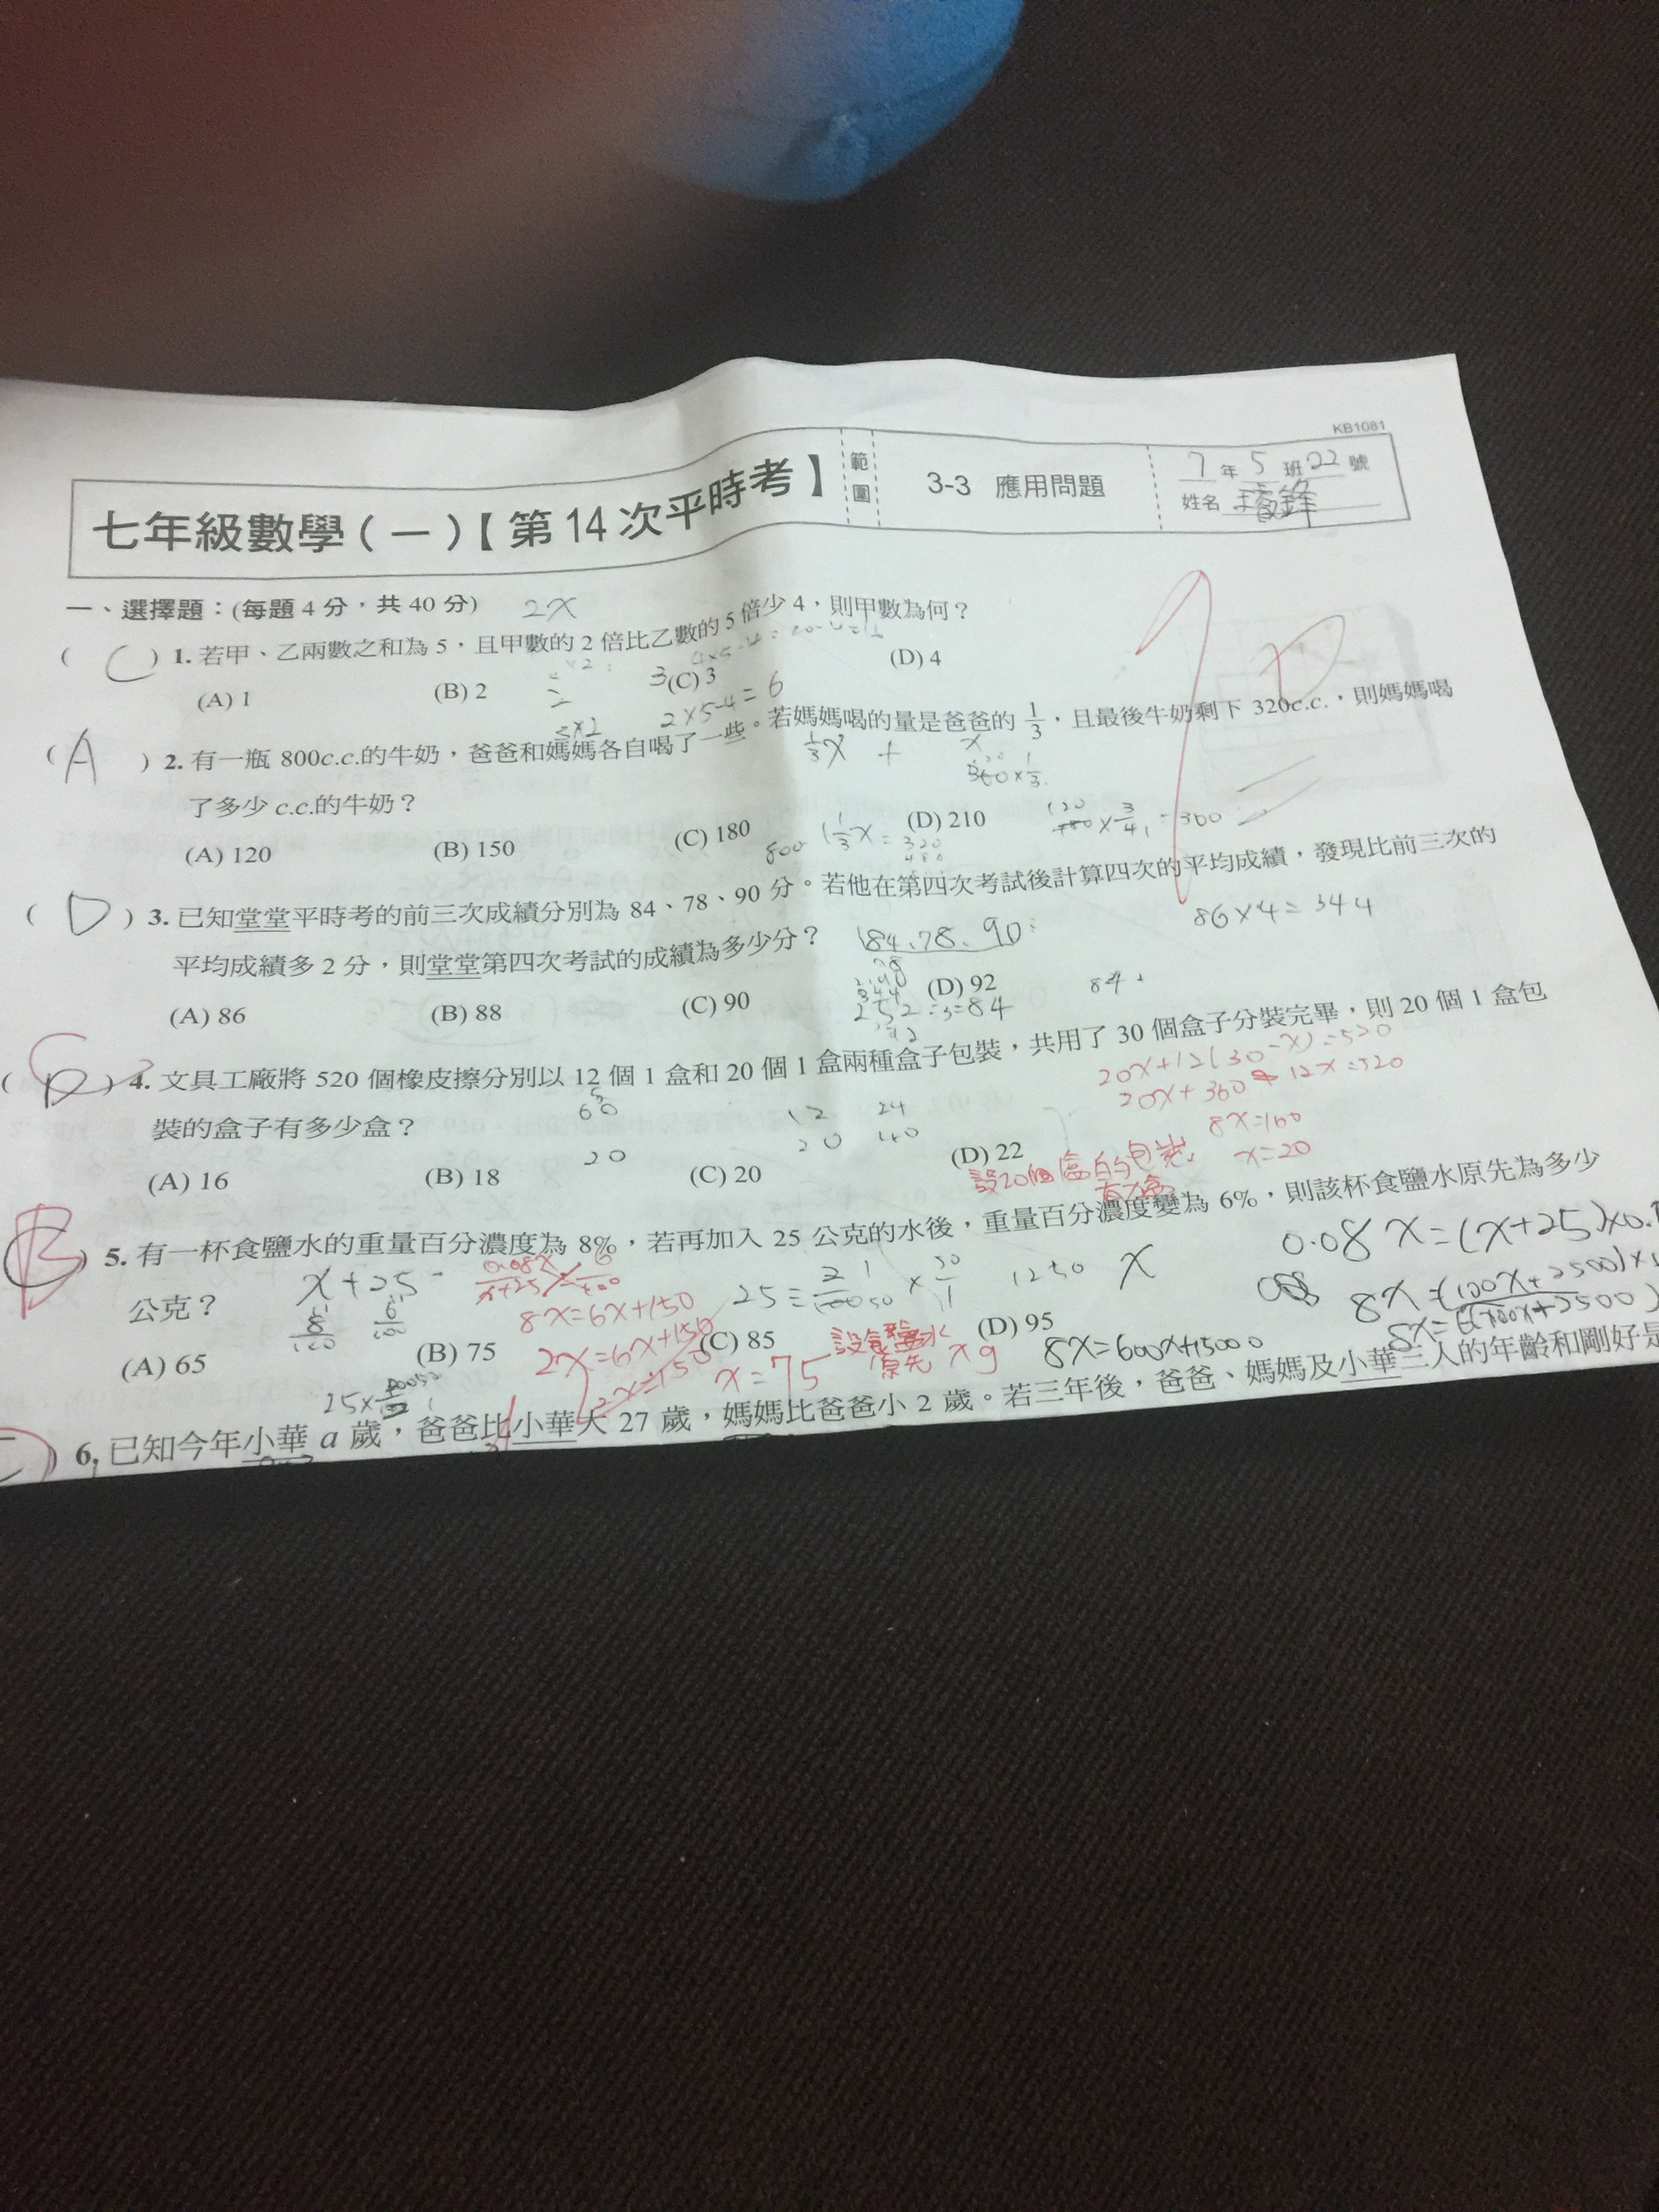 KB1081
七年級數學(一)【第14次平時考】
範圍
3-3 應用問題
7年5班22號
姓名
一、選擇題：(每題4分，共40分) 2x
( C ) 1. 若甲、乙兩數之和為5，且甲數的2倍比乙數的5倍少4，則甲數為何？
(A) 1 (B) 2 (C) 3 (D) 4
2×5-4=6
( A ) 2. 有一瓶800c.c.的牛奶，爸爸和媽媽各自喝了一些。若媽媽喝的量是爸爸的1/3，且最後牛奶剩下320c.c.，則媽媽喝
了多少c.c.的牛奶？
(A) 120 (B) 150 (C) 180 (D) 210
( D ) 3. 已知堂堂平時考的前三次成績分別為84、78、90分。若他在第四次考試後計算四次的平均成績，發現比前三次的
86×4=344
平均成績多2分，則堂堂第四次考試的成績為多少分？
84、78、90
(A) 86 (B) 88 (C) 90 (D) 92
252÷3=84
( C ) 4. 文具工廠將520個橡皮擦分別以12個1盒和20個1盒兩種盒子包裝，共用了30個盒子分裝完畢，則20個1盒包
20x+12(30-x)=520
裝的盒子有多少盒？
8x=160
x=20
(A) 16 (B) 18 (C) 20 (D) 22
( B ) 5. 有一杯食鹽水的重量百分濃度為8%，若再加入25公克的水後，重量百分濃度變為6%，則該杯食鹽水原先為多少
公克？
x+25
8x=6x+150
(A) 65 (B) 75 (C) 85 (D) 95
x=75
設食鹽水原先xg
8x=600x+15000
6. 已知今年小華a歲，爸爸比小華大27歲，媽媽比爸爸小2歲。若三年後，爸爸、媽媽及小華三人的年齡和剛好是